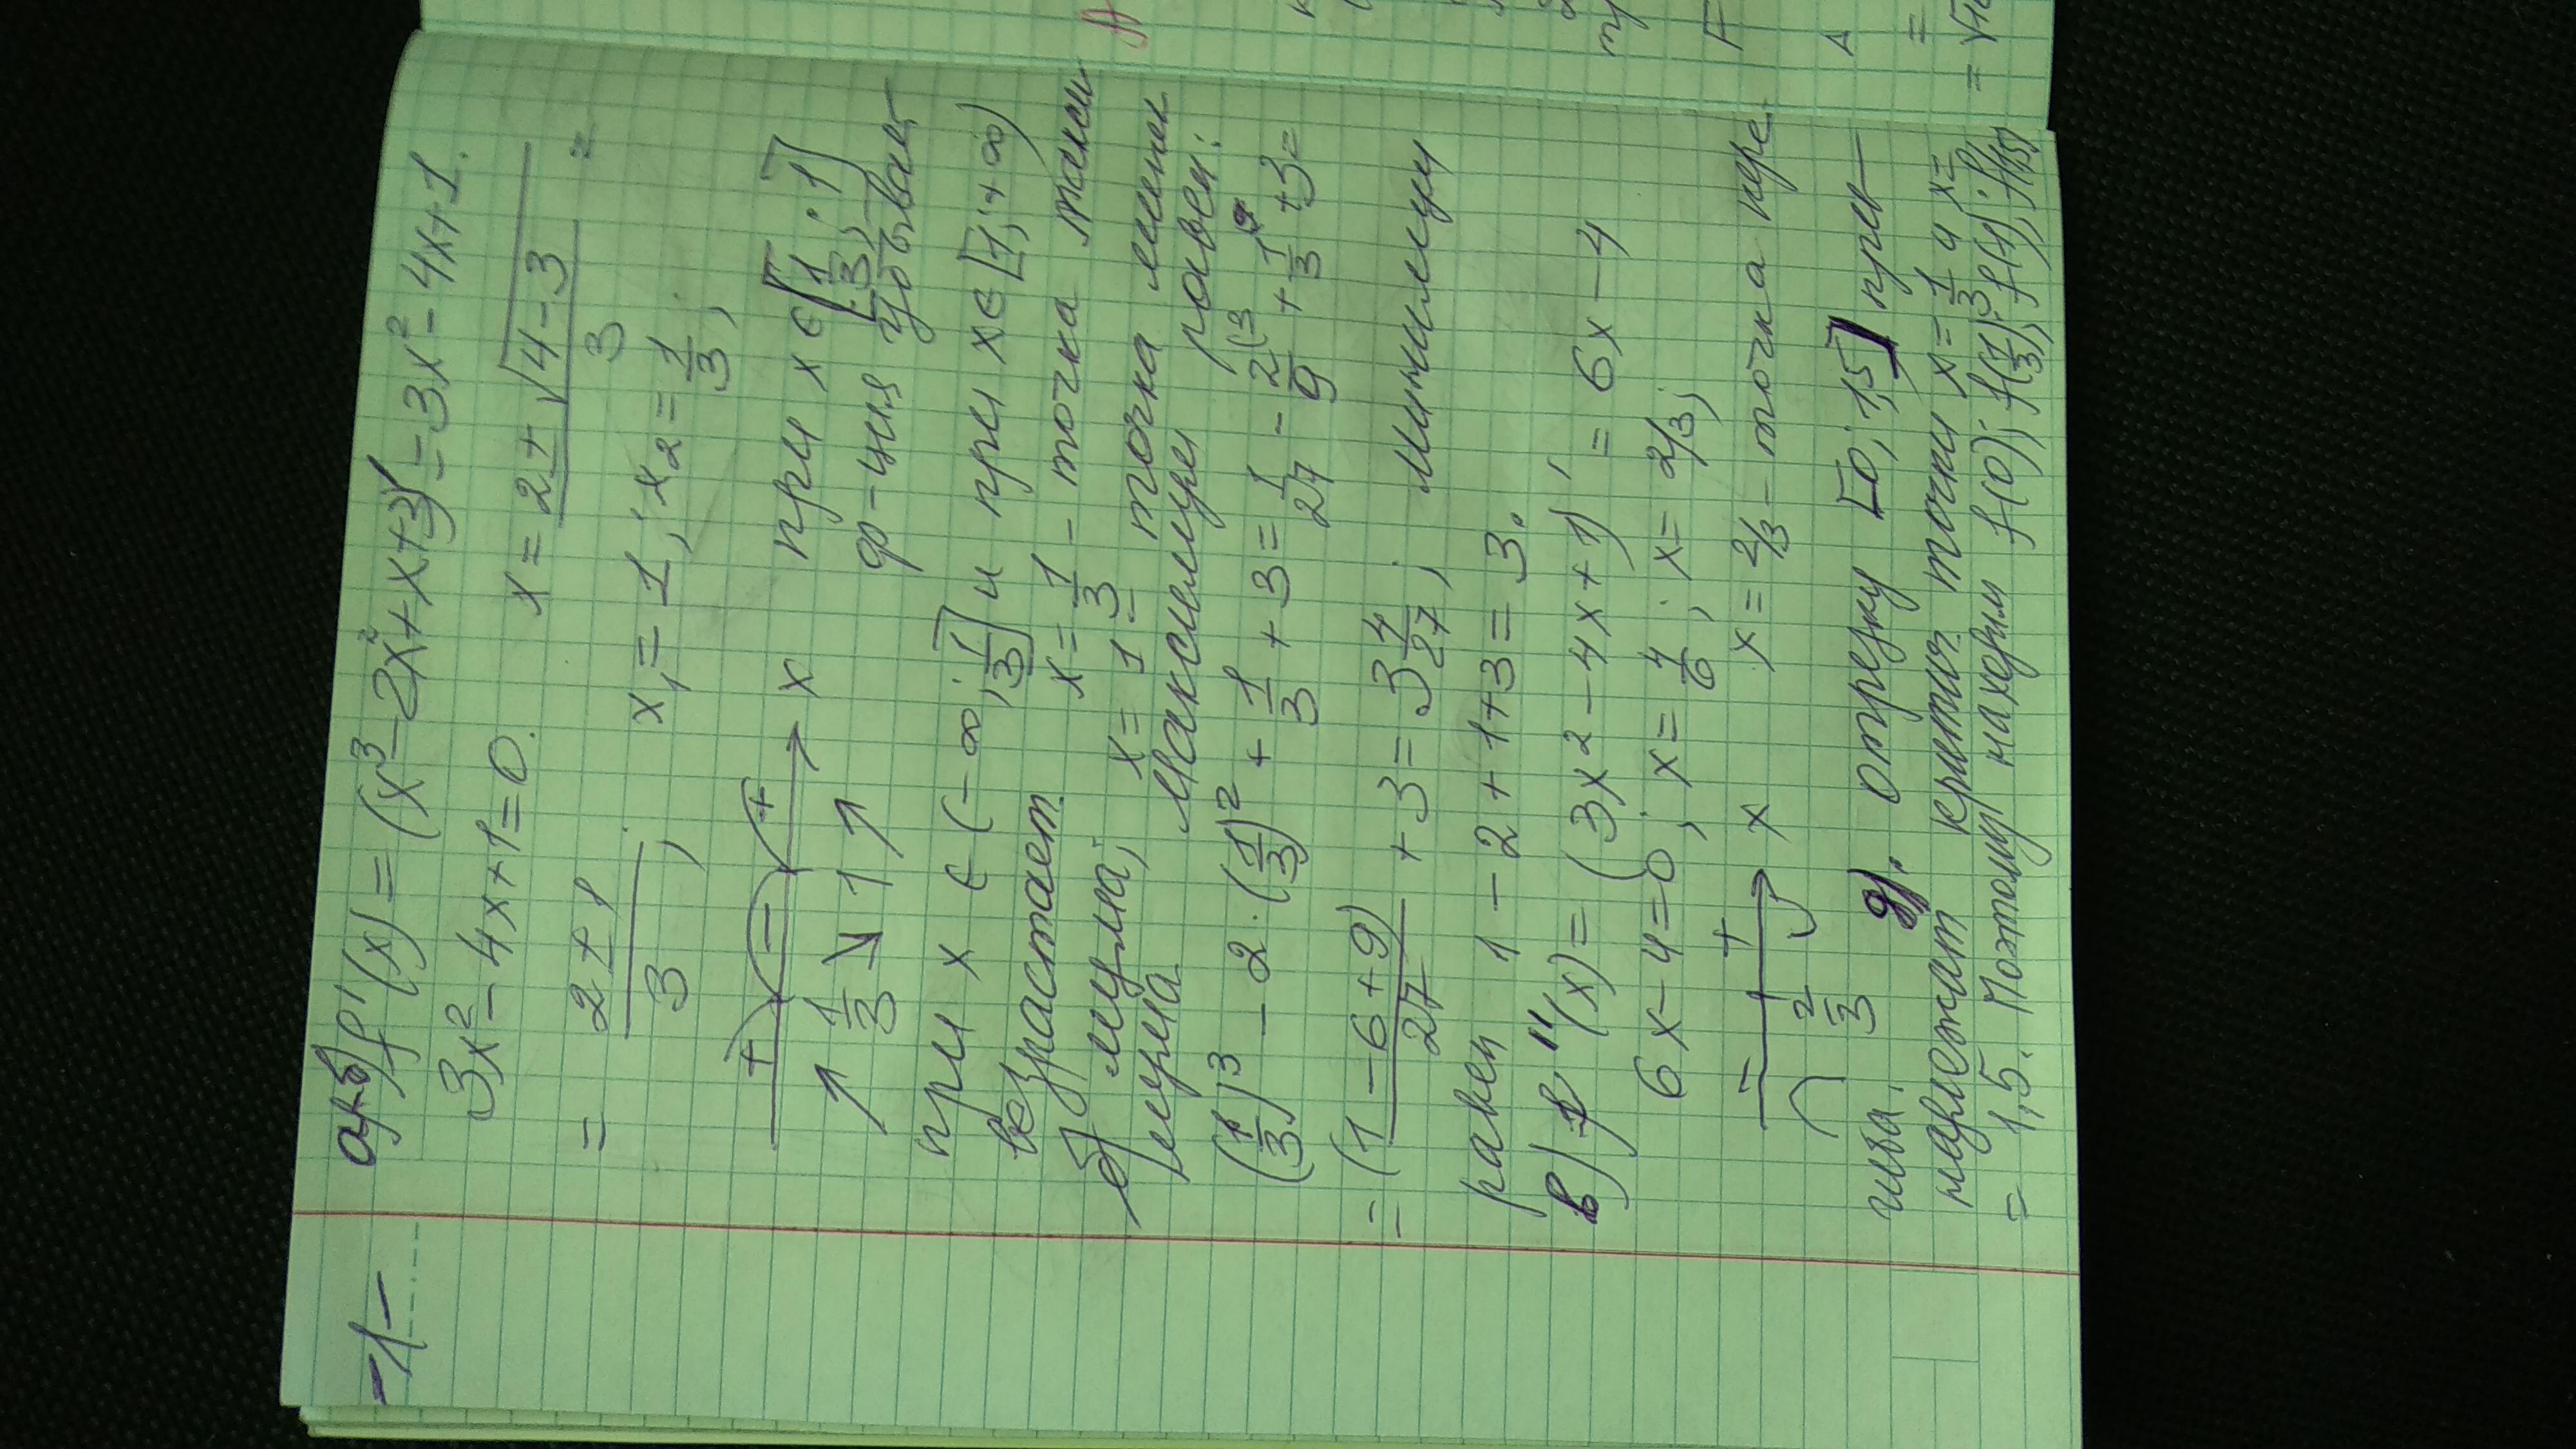 -1-
а) б) f'(x) = (x³ - 2x² + x + 3)' = 3x² - 4x + 1.
3x² - 4x + 1 = 0. x = (2 ± √(4 - 3))/3 =
= (2 ± 1)/3; x₁ = 1; x₂ = 1/3;
+ - + x при x ∈ [1/3; 1]
↗ 1/3 ↘ 1 ↗ ф-ция убывает
при x ∈ (-∞; 1/3] и при x ∈ [1; +∞)
возрастает x = 1/3 - точка макси
б) мума; x = 1 - точка мини
мума максимум равен:
(1/3)³ - 2·(1/3)² + 1/3 + 3 = 1/27 - 2(3/9 + 1(9/3 + 3 =
= (1 - 6 + 9)/27 + 3 = 3 4/27; минимум
равен 1 - 2 + 1 + 3 = 3.
в) f''(x) = (3x² - 4x + 1)' = 6x - 4
6x - 4 = 0; x = 4/6; x = 2/3;
- + x x = 2/3 - точка пере
∩ 2/3 ∪
гиба. д). отрезку [0; 1,5] при-
надлежат критич точки x = 1/3 и x =
= 1,5. Поэтому находим f(0); f(1/3); f(1); f(1,5)
A
F
A
=
= √